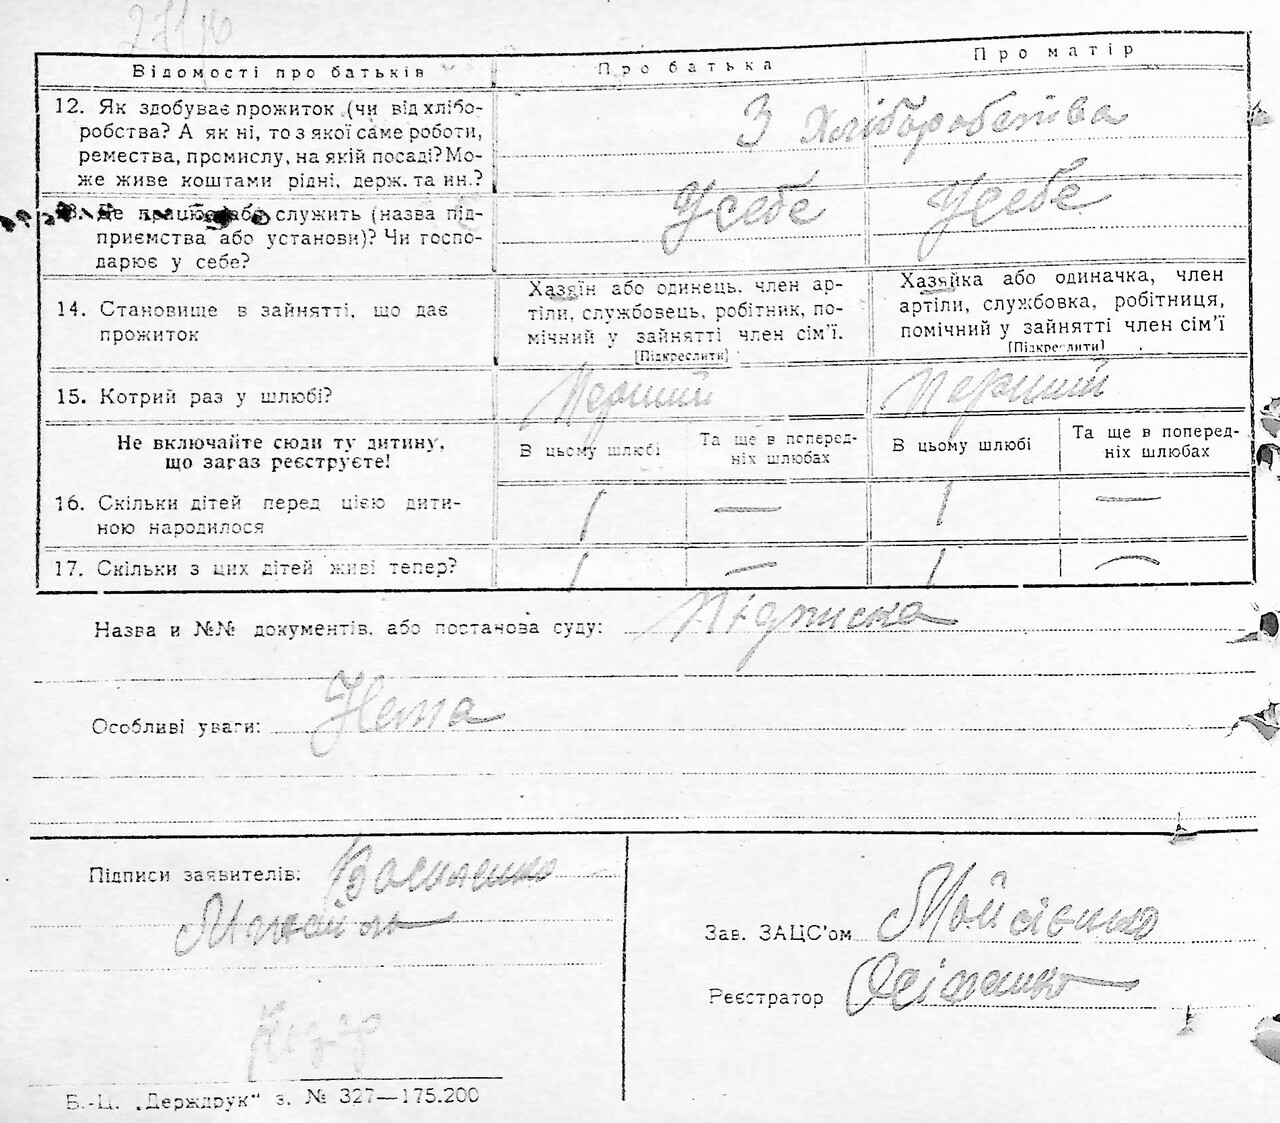 Відомості про батьків Про батька Про матір
12. Як здобуває прожиток (чи від хлібо-
робства? А як ні, то з якої саме роботи,
ремества, промислу, на якій посаді? Мо-
же живе коштами рідні, держ. та ин.?
З Хліборобства
13. Де працює або служить (назва під-
приємства або установи)? Чи госпо-
дарює у себе?
Усебе Усебе
14. Становище в зайнятті, що дає
прожиток
Хазяїн або одинець, член ар-
тіли, службовець, робітник, по-
мічний у зайнятті член сім'ї.
[Підкреслити]
Хазяйка або одиначка, член
артіли, службовка, робітниця,
помічний у зайнятті член сім'ї
[Підкреслити]
15. Котрий раз у шлюбі? Перший Перший
Не включайте сюди ту дитину,
що загаз реєструєте!
В цьому шлюбі
Та ще в поперед-
ніх шлюбах
В цьому шлюбі
Та ще в поперед-
ніх шлюбах
16. Скільки дітей перед цією дити-
ною народилося
1 — 1 —
17. Скільки з цих дітей живі тепер? 1 — 1 —
Назва и №№ документів, або постанова суду: Підписка
Особливі уваги: Нема
Підписи заявителів: Василенко
Михайло
Зав. ЗАЦС'ом Мойсієнко
Реєстратор
Б.-Ц. „Держдрук“ з. № 327—175.200